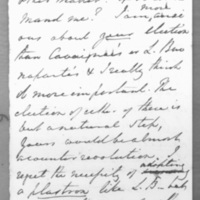 more
mand me. I am, anxi
ous about your election
than Cavaignac's or L. Buo
naparte's & I really think
it more important. The
election of eith. of them is
but a natural step,
yours would be almost
a counter revolution. I
regret the necessity of adopting
a plastron like L. B — and